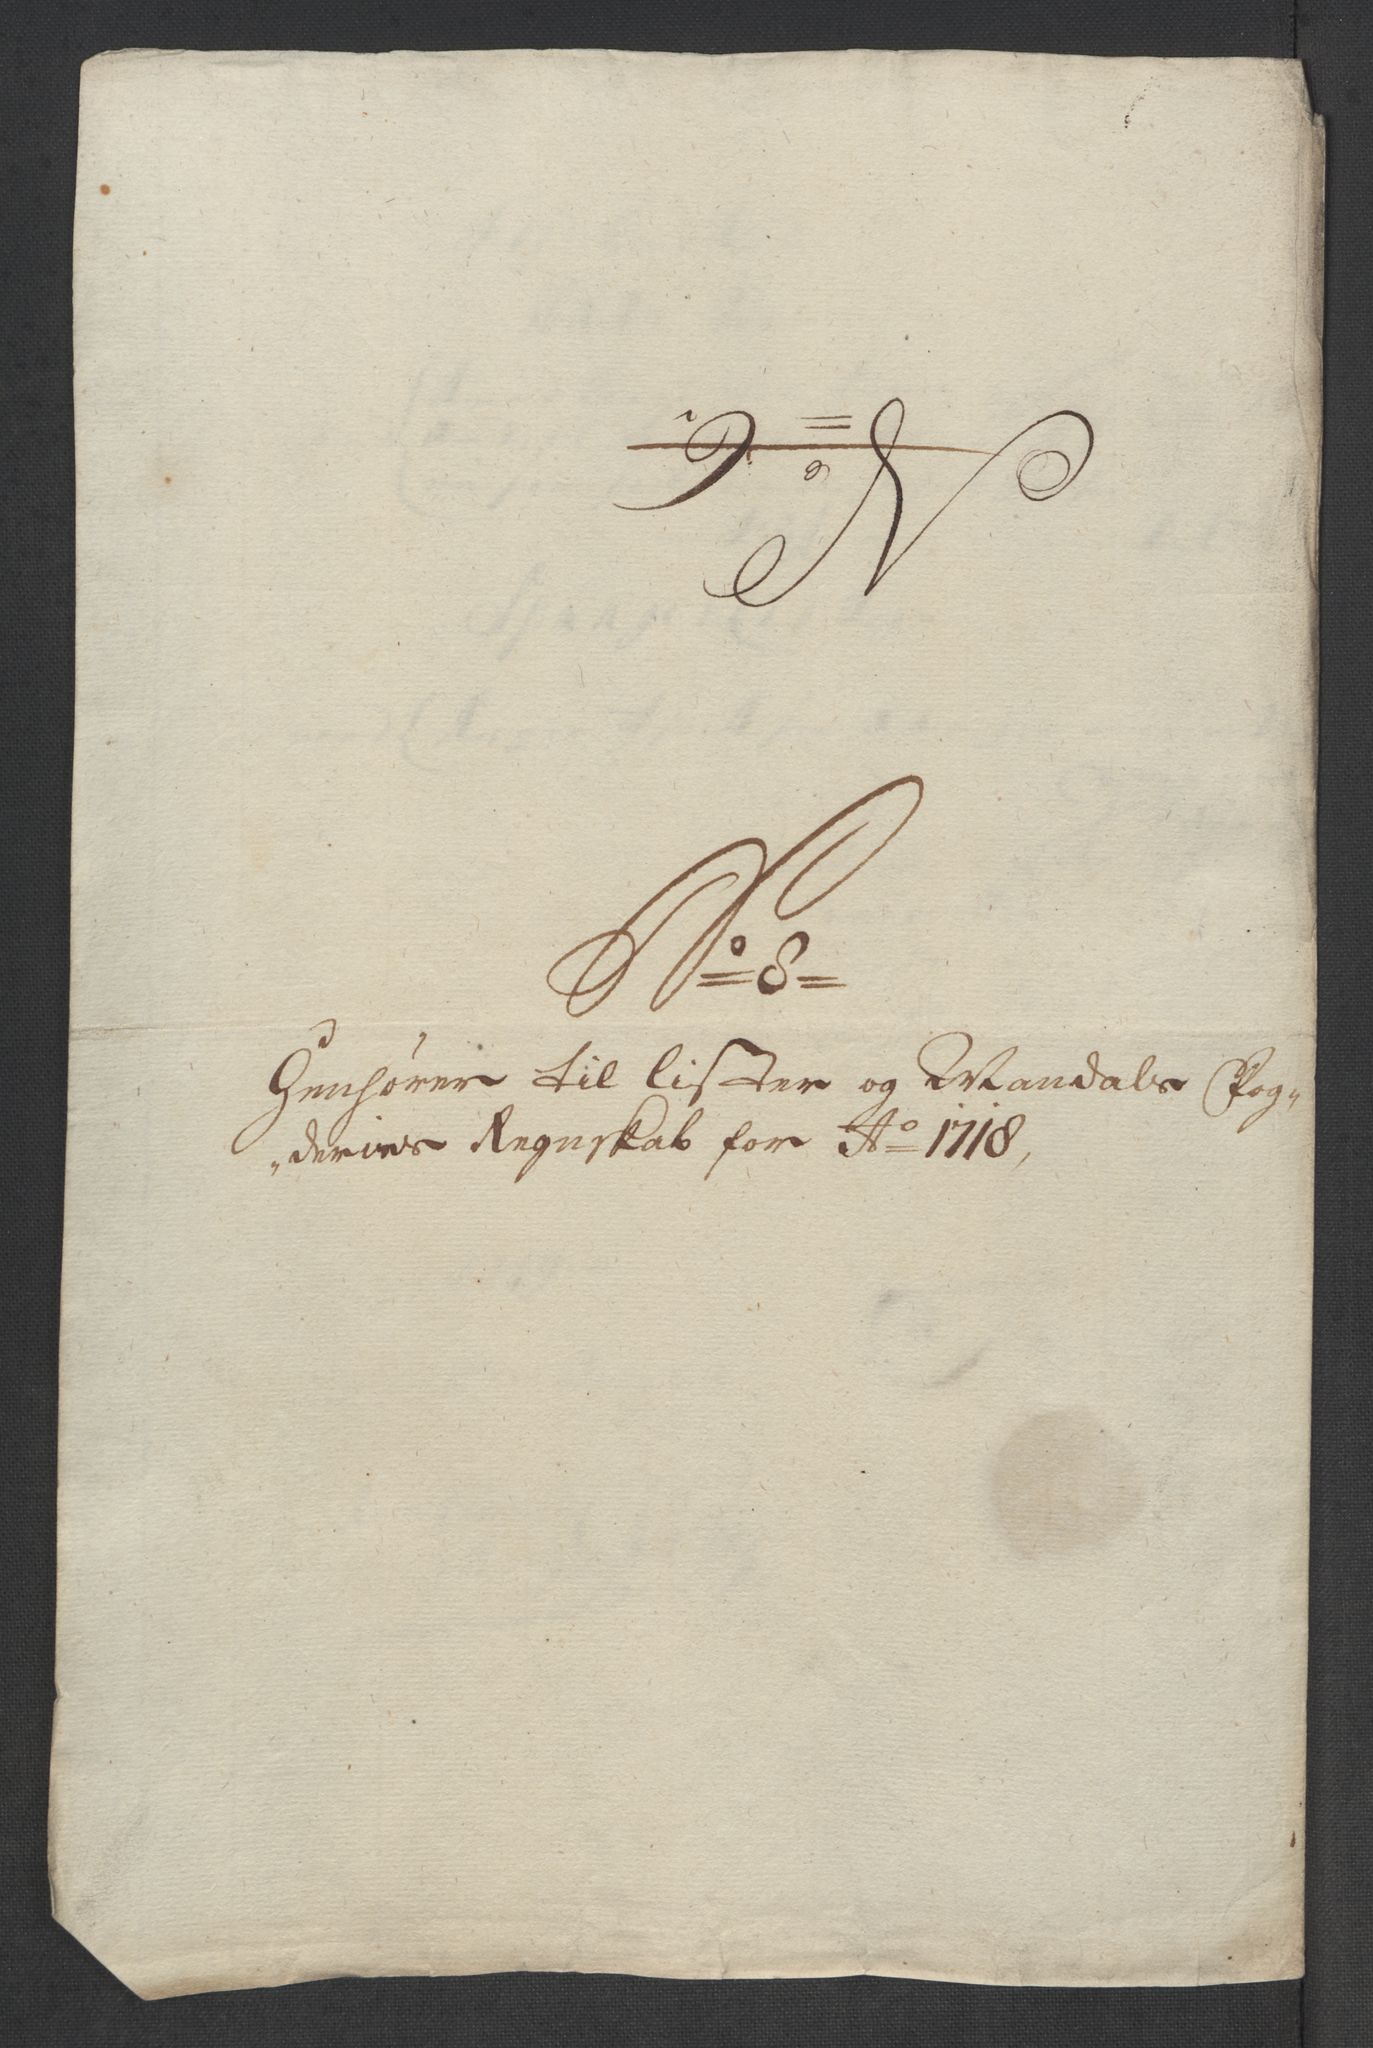 No 8
Henhører til Lister og Mandals Fog=
=deries Regnskab for Ao 1718,